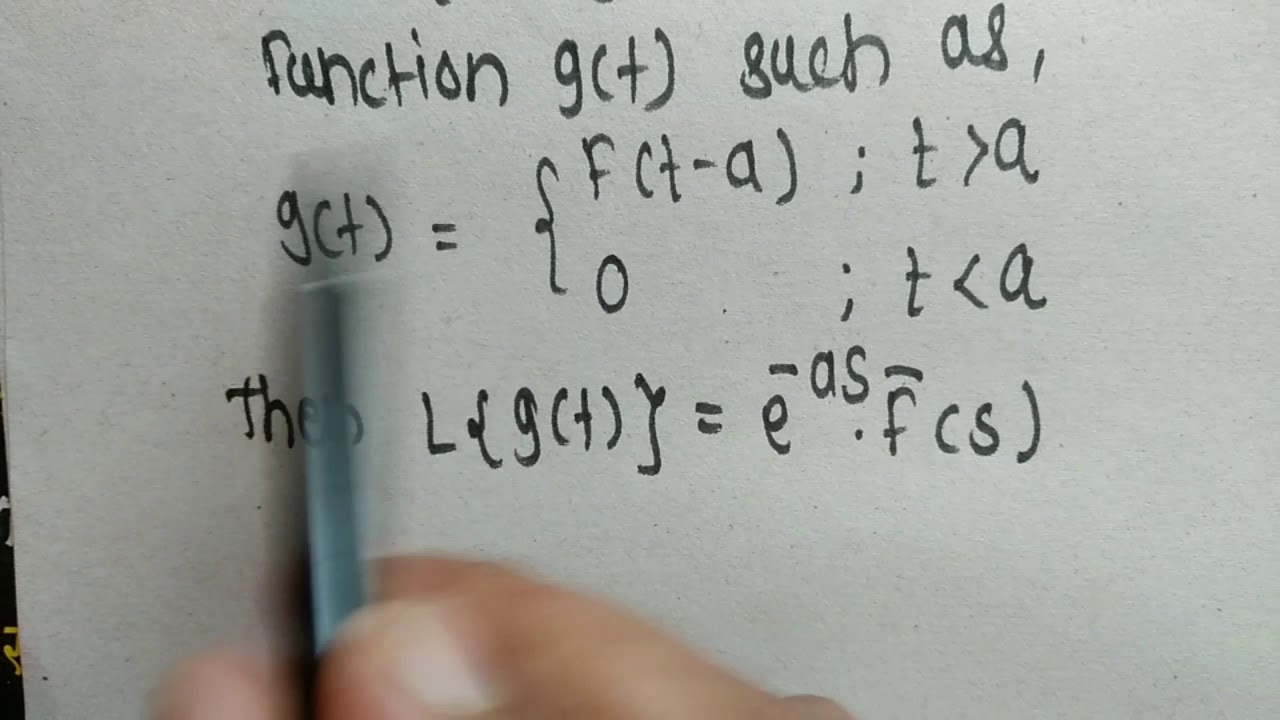 function g(t) such as,
g(t) = { F(t-a) ; t>a
0 ; t<a
Then L{g(t)} = e^-as . f̄(s)